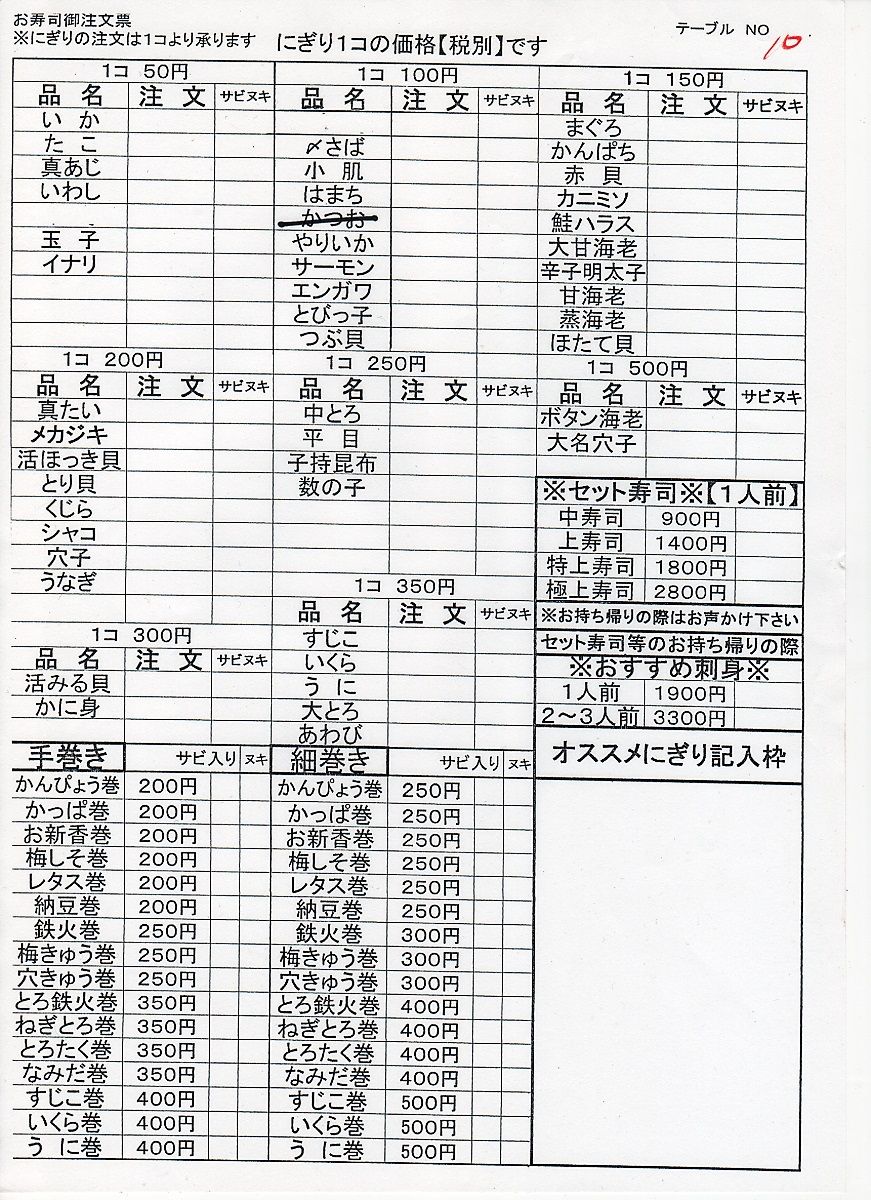 お寿司御注文票
※にぎりの注文は1コより承ります
にぎり1コの価格【税別】です
テーブル NO 10
1コ 50円
品 名 注 文 サビヌキ
いか
たこ
真あじ
いわし
玉子
イナリ
1コ 100円
品 名 注 文 サビヌキ
〆さば
小肌
はまち
かつお
やりいか
サーモン
エンガワ
とびっ子
つぶ貝
1コ 150円
品 名 注 文 サビヌキ
まぐろ
かんぱち
赤貝
カニミソ
鮭ハラス
大甘海老
辛子明太子
甘海老
蒸海老
ほたて貝
1コ 200円
品 名 注 文 サビヌキ
真たい
メカジキ
活ほっき貝
とり貝
くじら
シャコ
穴子
うなぎ
1コ 250円
品 名 注 文 サビヌキ
中とろ
平目
子持昆布
数の子
1コ 500円
品 名 注 文 サビヌキ
ボタン海老
大名穴子
※セット寿司※【1人前】
中寿司 900円
上寿司 1400円
特上寿司 1800円
極上寿司 2800円
※お持ち帰りの際はお声かけ下さい
セット寿司等のお持ち帰りの際
※おすすめ刺身※
1人前 1900円
2〜3人前 3300円
1コ 300円
品 名 注 文 サビヌキ
活みる貝
かに身
1コ 350円
品 名 注 文 サビヌキ
すじこ
いくら
うに
大とろ
あわび
手巻き サビ入り ヌキ
かんぴょう巻 200円
かっぱ巻 200円
お新香巻 200円
梅しそ巻 200円
レタス巻 200円
納豆巻 200円
鉄火巻 250円
梅きゅう巻 250円
穴きゅう巻 250円
とろ鉄火巻 350円
ねぎとろ巻 350円
とろたく巻 350円
なみだ巻 350円
すじこ巻 400円
いくら巻 400円
うに巻 400円
細巻き サビ入り ヌキ
かんぴょう巻 250円
かっぱ巻 250円
お新香巻 250円
梅しそ巻 250円
レタス巻 250円
納豆巻 250円
鉄火巻 300円
梅きゅう巻 300円
穴きゅう巻 300円
とろ鉄火巻 400円
ねぎとろ巻 400円
とろたく巻 400円
なみだ巻 400円
すじこ巻 500円
いくら巻 500円
うに巻 500円
オススメにぎり記入枠